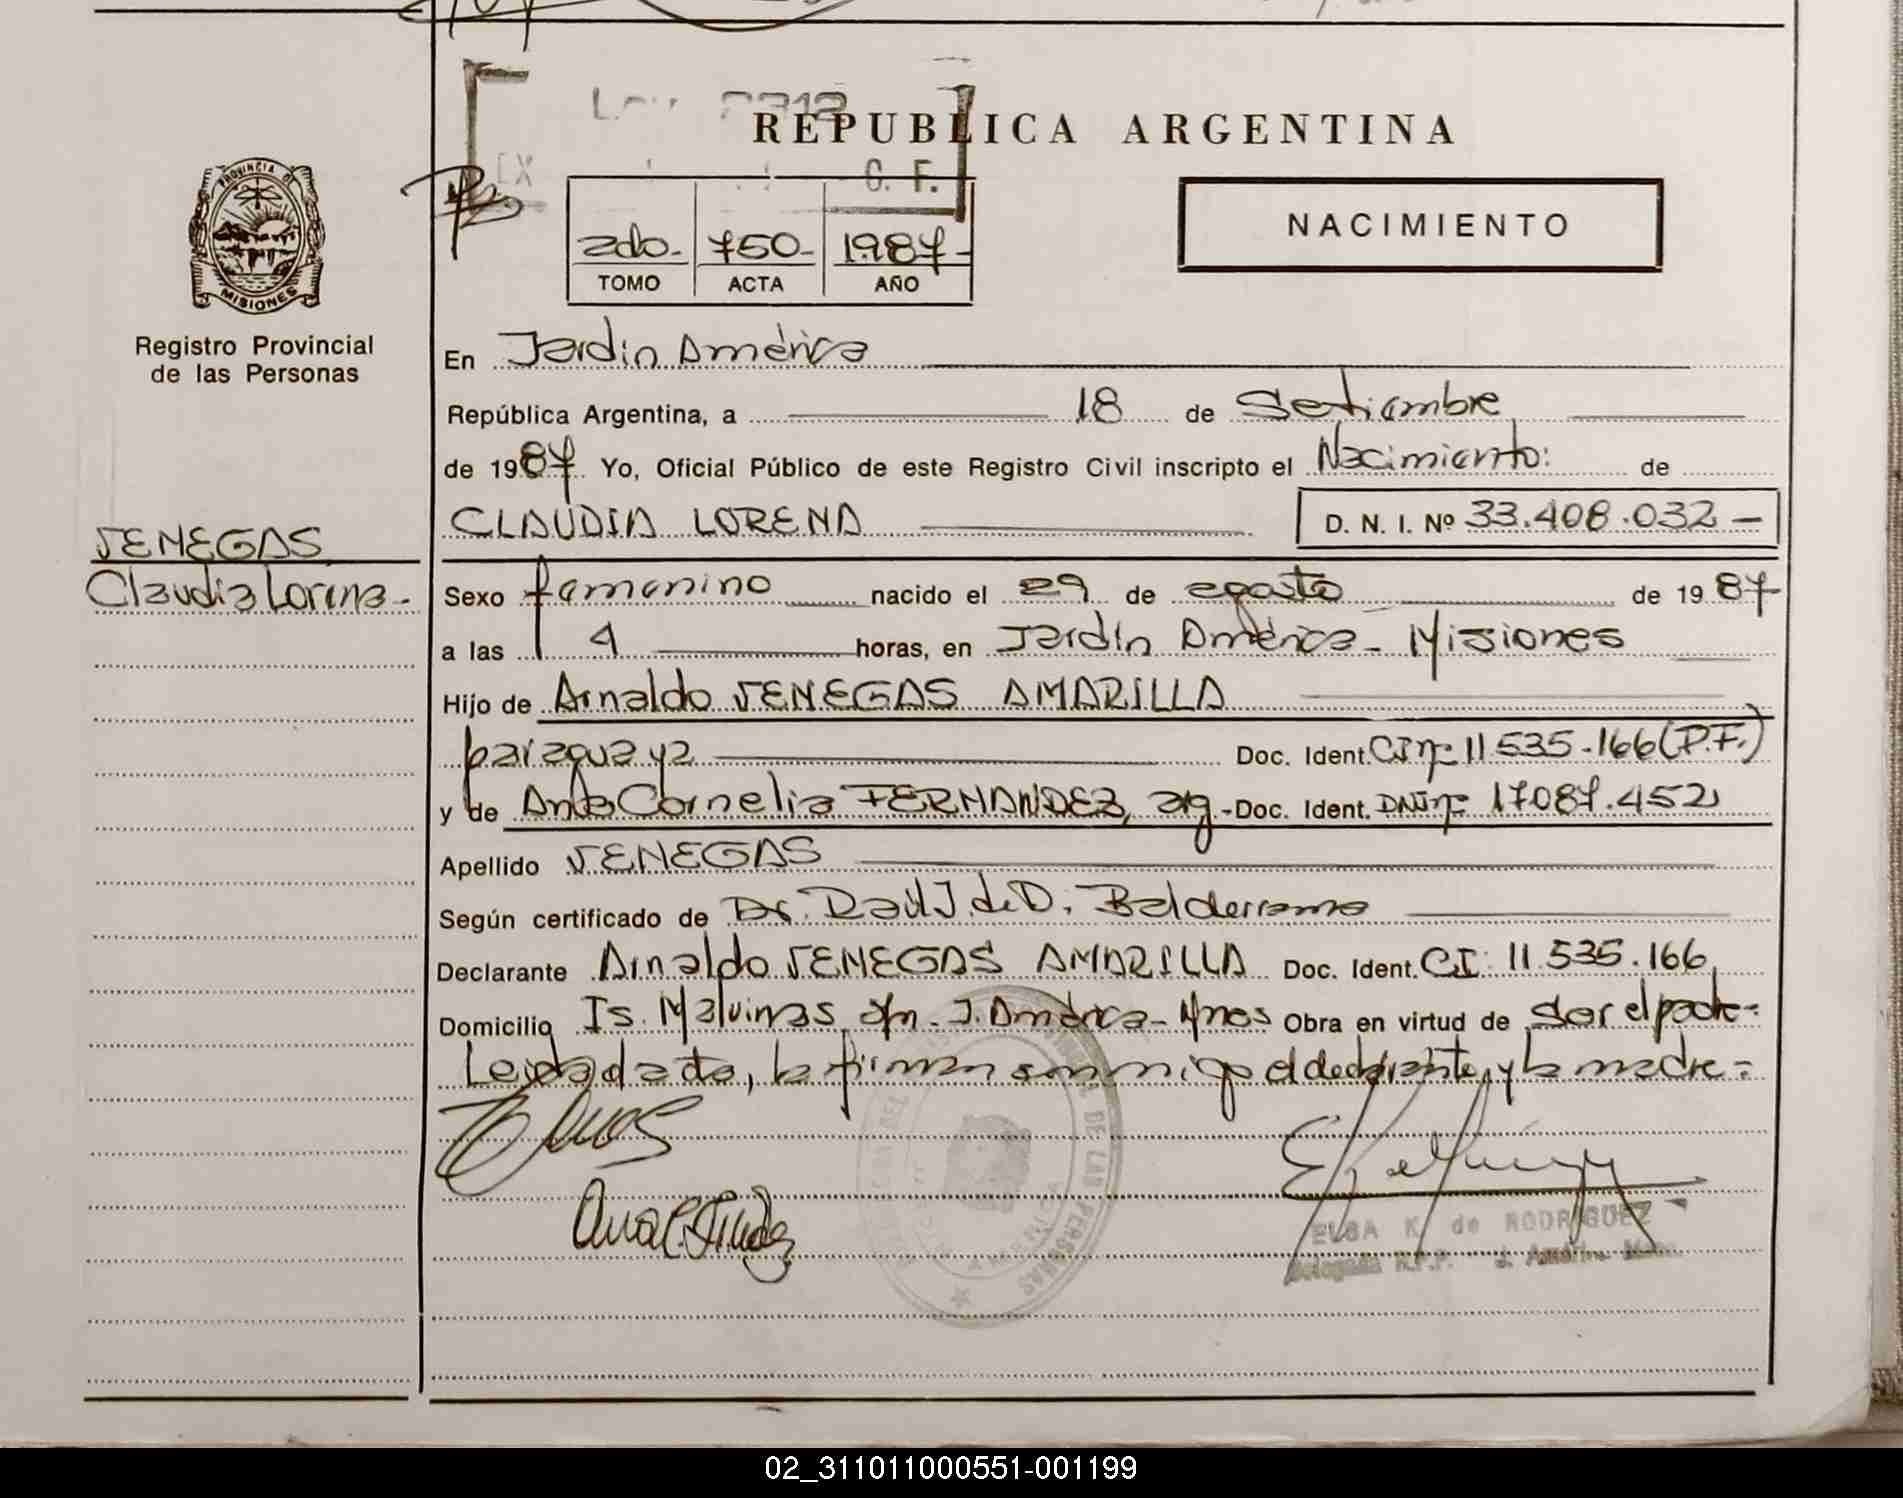 REPUBLICA ARGENTINA
C. F.
NACIMIENTO
2do.- 750- 1.987-
TOMO ACTA AÑO
PROVINCIA DE
MISIONES
Registro Provincial
de las Personas
En Jardin América
República Argentina, a 18 de Setiembre
de 1987. Yo, Oficial Público de este Registro Civil inscripto el Nacimiento: de
CLAUDIA LORENA D. N. I. Nº 33.408.032 —
VENEGAS
Claudia Lorena-
Sexo femenino nacido el 29 de agosto de 1987
a las 4 horas, en Jardín América- Misiones
Hijo de Arnaldo VENEGAS AMARILLA
paraguaya Doc. Ident. CI nº 11.535.166 (P.F.)
y de Ana Cornelia FERNANDEZ, arg- Doc. Ident. DNI nº 17.087.452
Apellido VENEGAS
Según certificado de Dr. Raúl J. de D. Balderrama
Declarante Arnaldo VENEGAS AMARILLA Doc. Ident. CI: 11.535.166
Domicilio Is. Malvinas s/n.- J. América- Mnes Obra en virtud de ser el padre=
Leida el acta, la firman conmigo el declarante y la madre=
DE LAS PERSONAS
ELSA K. de RODRIGUEZ
Delegada R.P.P.
02_311011000551-001199